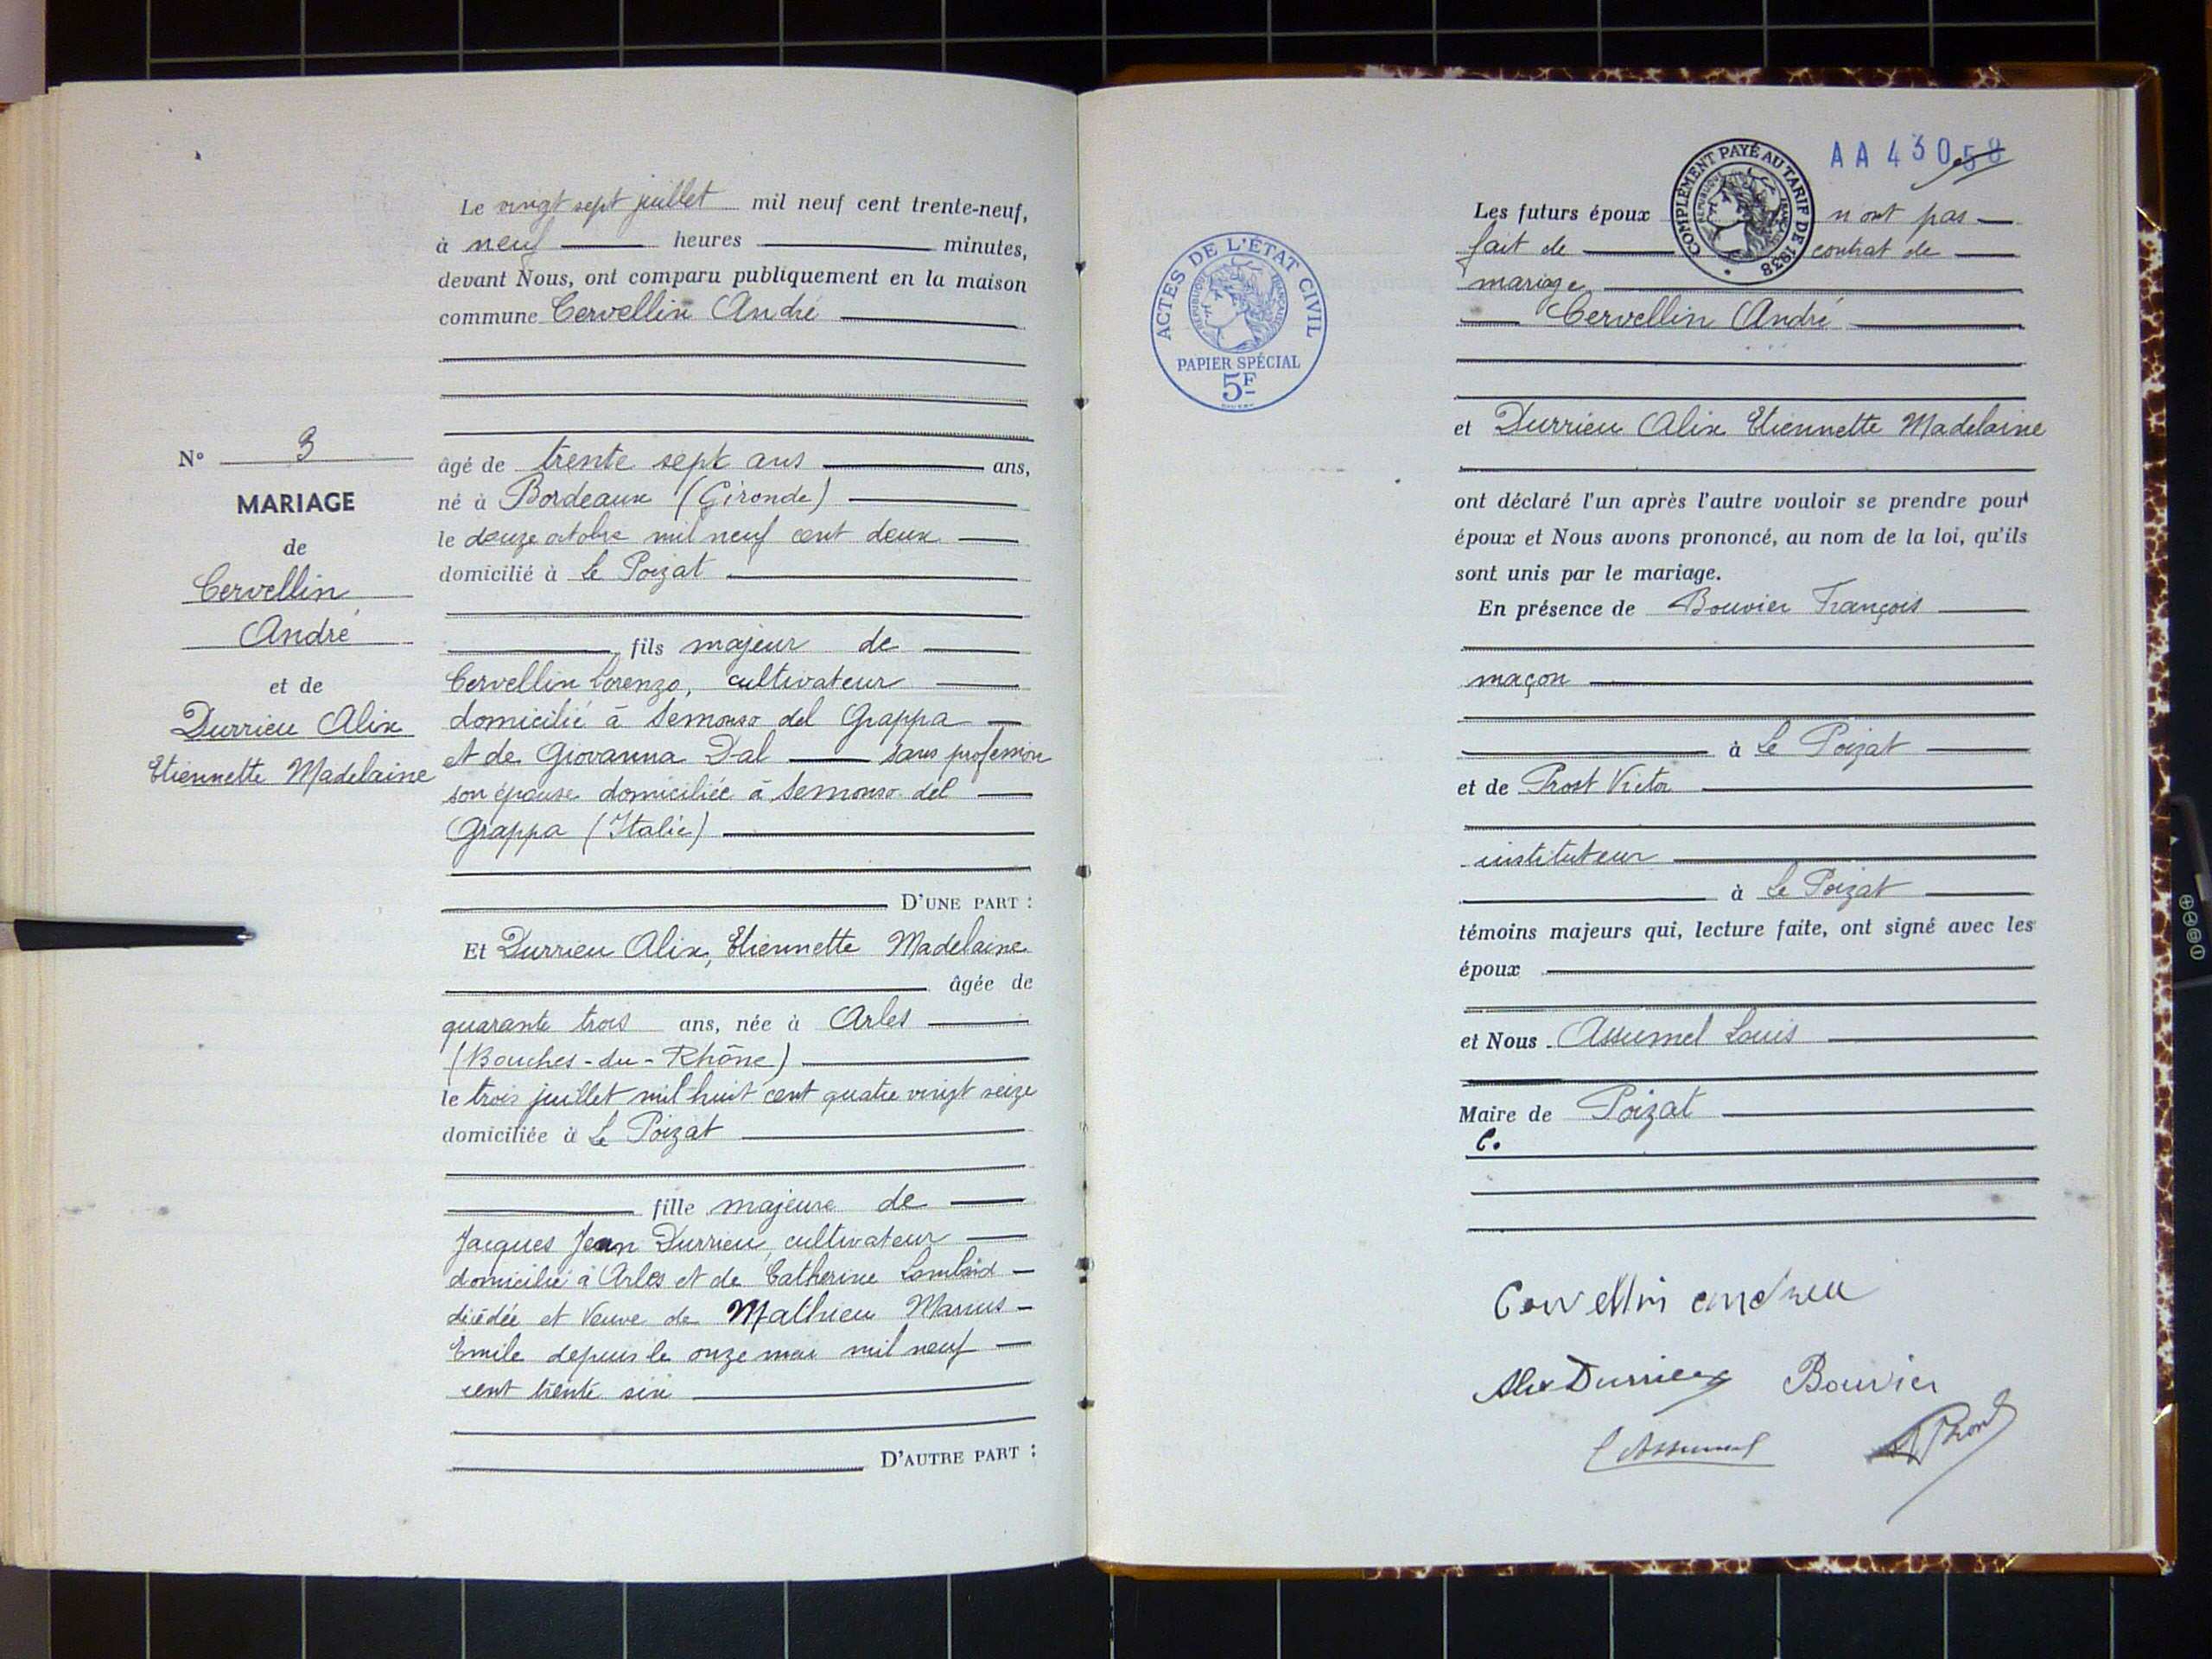 Le vingt sept juillet mil neuf cent trente-neuf,
à neuf heures minutes,
devant Nous, ont comparu publiquement en la maison
commune Cervellin André
âgé de trente sept ans ans,
né à Bordeaux (Gironde)
le douze octobre mil neuf cent deux
domicilié à Le Poizat
fils majeur de
Cervellin Lorenzo, cultivateur
domicilié à Semonso del Grappa
et de Giovanna Dal sans profession
son épouse domiciliée à Semonso del
Grappa (Italie)
D'UNE PART :
N° 3
MARIAGE
de
Cervellin
André
et de
Durrieu Alix
Etiennette Madelaine
Et Durrieu Alix, Etiennette Madelaine
âgée de
quarante trois ans, née à Arles
(Bouches-du-Rhône)
le trois juillet mil huit cent quatre vingt seize
domiciliée à Le Poizat
fille majeure de
Jacques Jean Durrieu, cultivateur
domicilié à Arles et de Catherine Lambard
décédée et Veuve de Mathieu Marius
Emile depuis le onze mai mil neuf
cent trente six
D'AUTRE PART :
ACTES DE L'ÉTAT CIVIL
RÉPUBLIQUE FRANÇAISE
PAPIER SPÉCIAL
5F
COMPLÉMENT PAYÉ AU TARIF DE 1938
RÉPUBLIQUE FRANÇAISE
AA 43058
Les futurs époux n'ont pas
fait de contrat de
mariage
Cervellin André
et Durrieu Alix Etiennette Madelaine
ont déclaré l'un après l'autre vouloir se prendre pour
époux et Nous avons prononcé, au nom de la loi, qu'ils
sont unis par le mariage.
En présence de Bouvier François
maçon
à Le Poizat
et de Prost Victor
instituteur
à Le Poizat
témoins majeurs qui, lecture faite, ont signé avec les
époux
et Nous Assumel Louis
Maire de Poizat
C.
Cervellin andreu
Alix Durrieu Bouvier
L Assumel V Prost